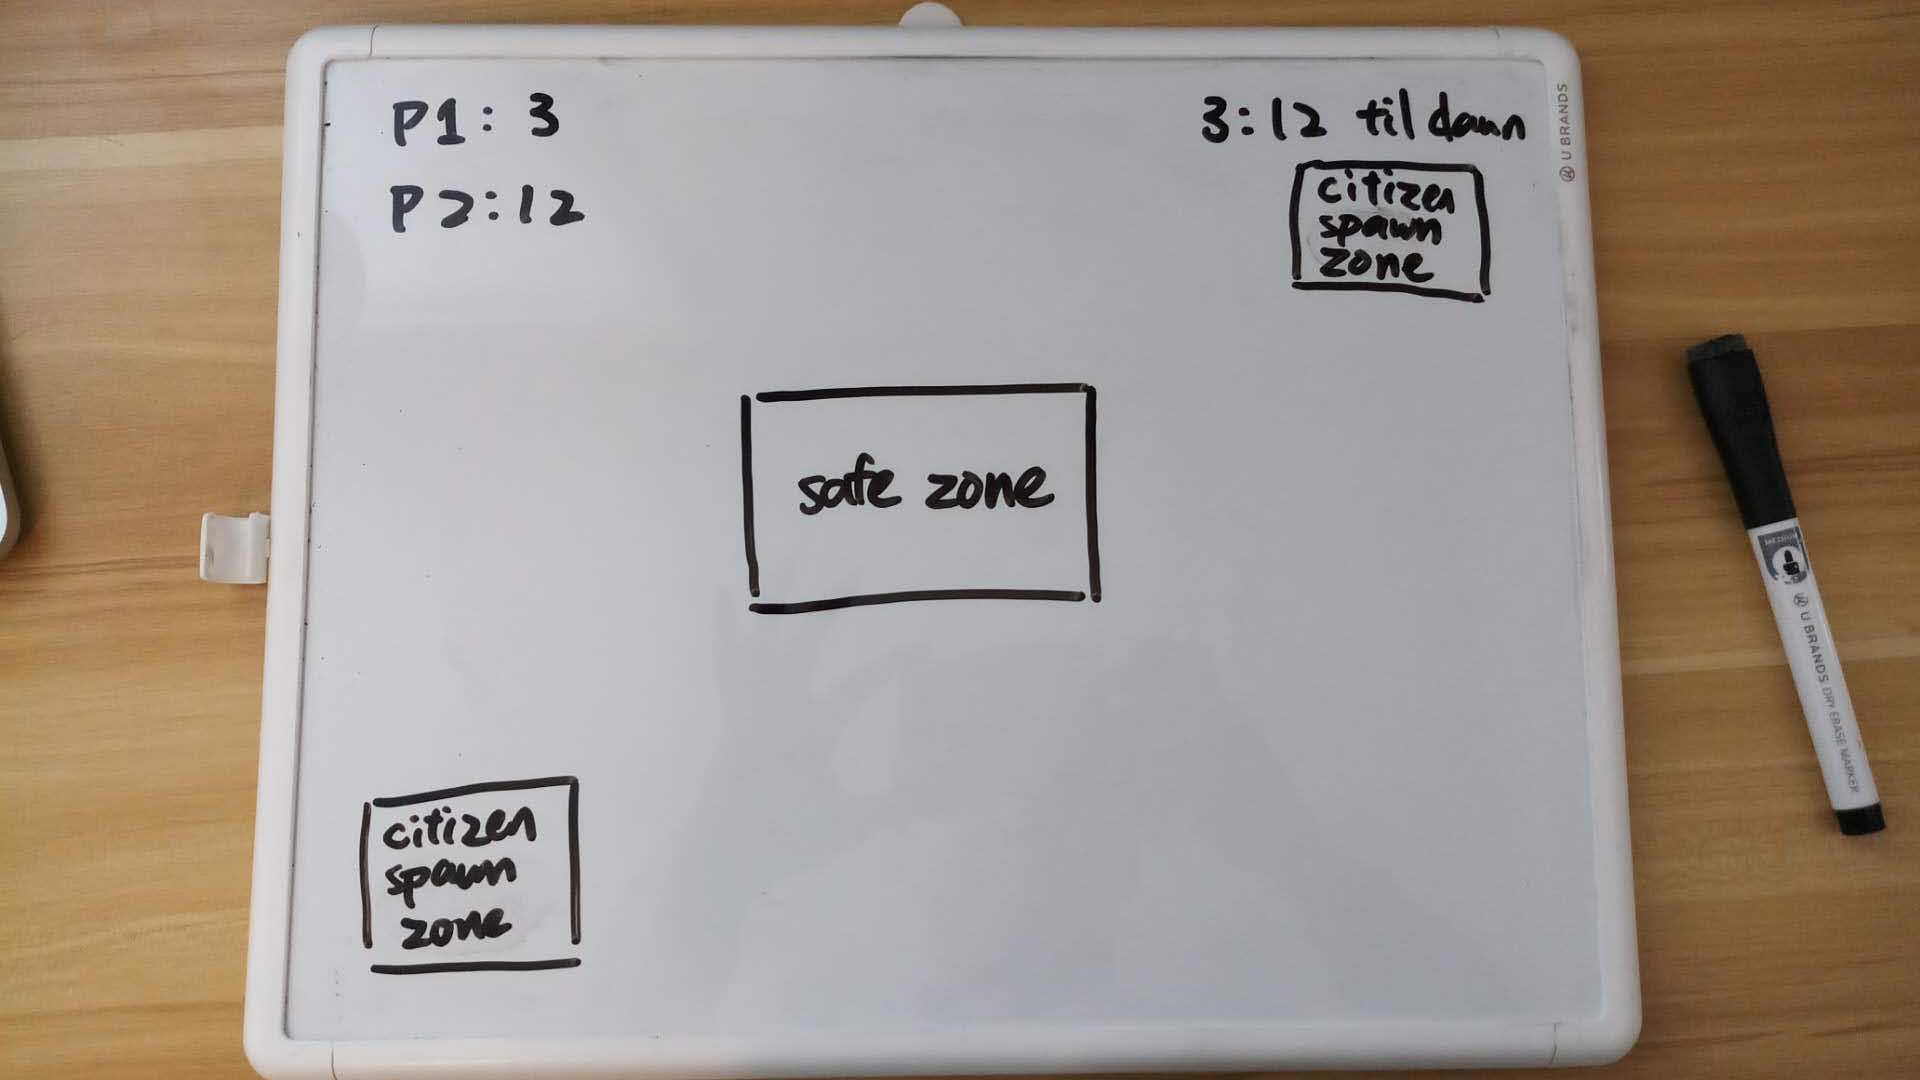 P1: 3
P2:12
3:12 til dawn
citizen
spawn
zone
safe zone
citizen
spawn
zone
U BRANDS
U BRANDS DRY ERASE MARKER